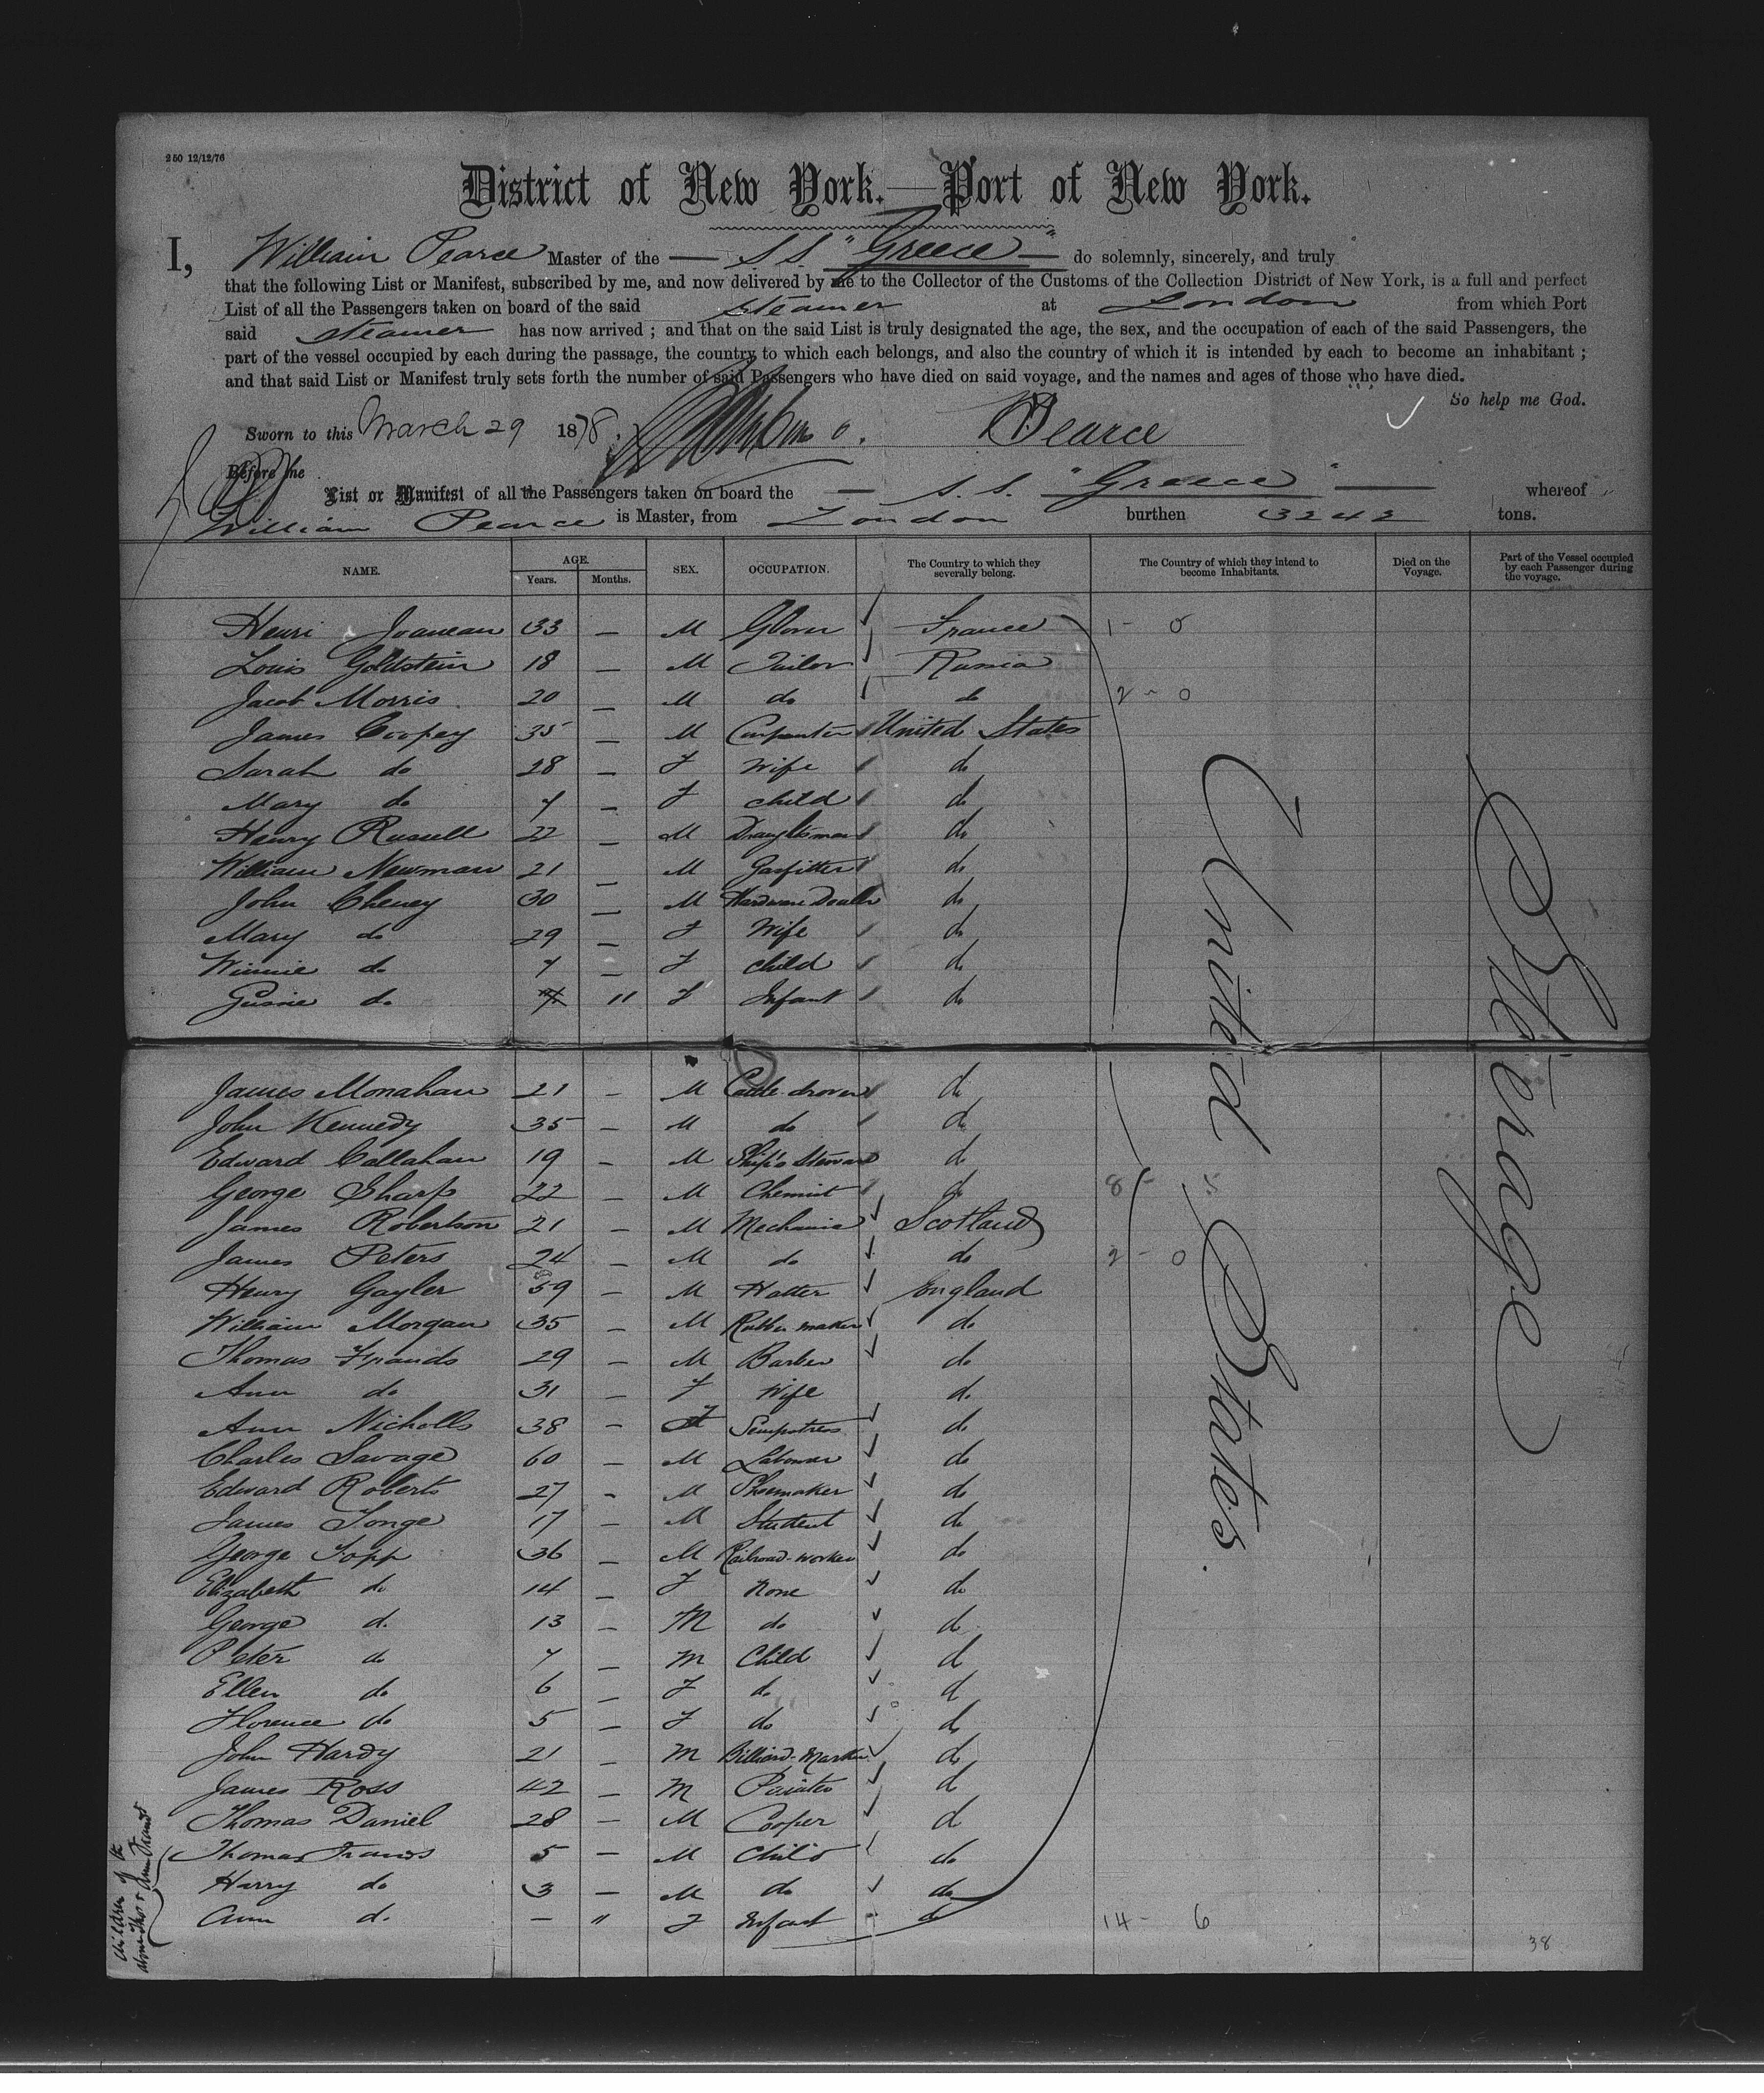 250 12/12/76
District of New York.—Port of New York.
I, William Pearce Master of the — S.S. "Greece" — do solemnly, sincerely, and truly
that the following List or Manifest, subscribed by me, and now delivered by me to the Collector of the Customs of the Collection District of New York, is a full and perfect
List of all the Passengers taken on board of the said steamer at London from which Port
said steamer has now arrived ; and that on the said List is truly designated the age, the sex, and the occupation of each of the said Passengers, the
part of the vessel occupied by each during the passage, the country to which each belongs, and also the country of which it is intended by each to become an inhabitant ;
and that said List or Manifest truly sets forth the number of said Passengers who have died on said voyage, and the names and ages of those who have died.
So help me God.
Sworn to this March 29 1878. W Pearce
Before me
List or Manifest of all the Passengers taken on board the — S.S. "Greece" — whereof
William Pearce is Master, from London burthen 3242 tons.
NAME. AGE. Years. Months. SEX. OCCUPATION. The Country to which they severally belong. The Country of which they intend to become Inhabitants. Died on the Voyage. Part of the Vessel occupied by each Passenger during the voyage.
Henri Joaneau 33 — M Glover France 1 - 0
Louis Goldstein 18 — M Tailor Russia
Jacob Morris 20 — M do do 2 - 0
James Coopey 35 — M Carpenter United States
Sarah do 28 — F Wife do
Mary do 7 — F child do
Henry Russell 22 — M Draughtsman do
William Newman 21 — M Gasfitter do
John Cheney 30 — M Hardware Dealer do
Mary do 29 — F Wife do
Winnie do 7 — F child do
Gussie do 11 F Infant do
James Monahan 21 — M Cattle-drover do
John Kennedy 35 — M do do
Edward Callahan 19 — M Ship's Steward do
George Sharp 22 — M Chemist do 8 - 5
James Robertson 21 — M Mechanic Scotland
James Peters 24 — M do do 2 - 0
Henry Gayler 59 — M Hatter England
William Morgan 35 — M Rubber maker do
Thomas Frands 29 — M Barber do
Ann do 31 — F Wife do
Ann Nicholls 38 — F Sempstress do
Charles Savage 60 — M Labourer do
Edward Roberts 27 — M Shoemaker do
James Tonge 17 — M Student do
George Topp 36 — M Railroad-worker do
Elizabeth do 14 — F None do
George do 13 — M do do
Peter do 7 — M Child do
Ellen do 6 — F do do
Florence do 5 — F do do
John Hardy 21 — M Billiard-Marker do
James Ross 42 — M Painter do
Thomas Daniel 28 — M Cooper do
Thomas Frands 5 — M Child do
Harry do 3 — M do do
Ann do — " F Infant do 14 - 6
United States.
Steerage
children of the
above Thos & Ann Frands
38